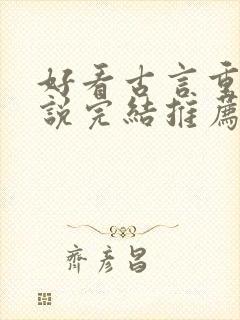 好看古言重
說完結推薦
齊彦昌